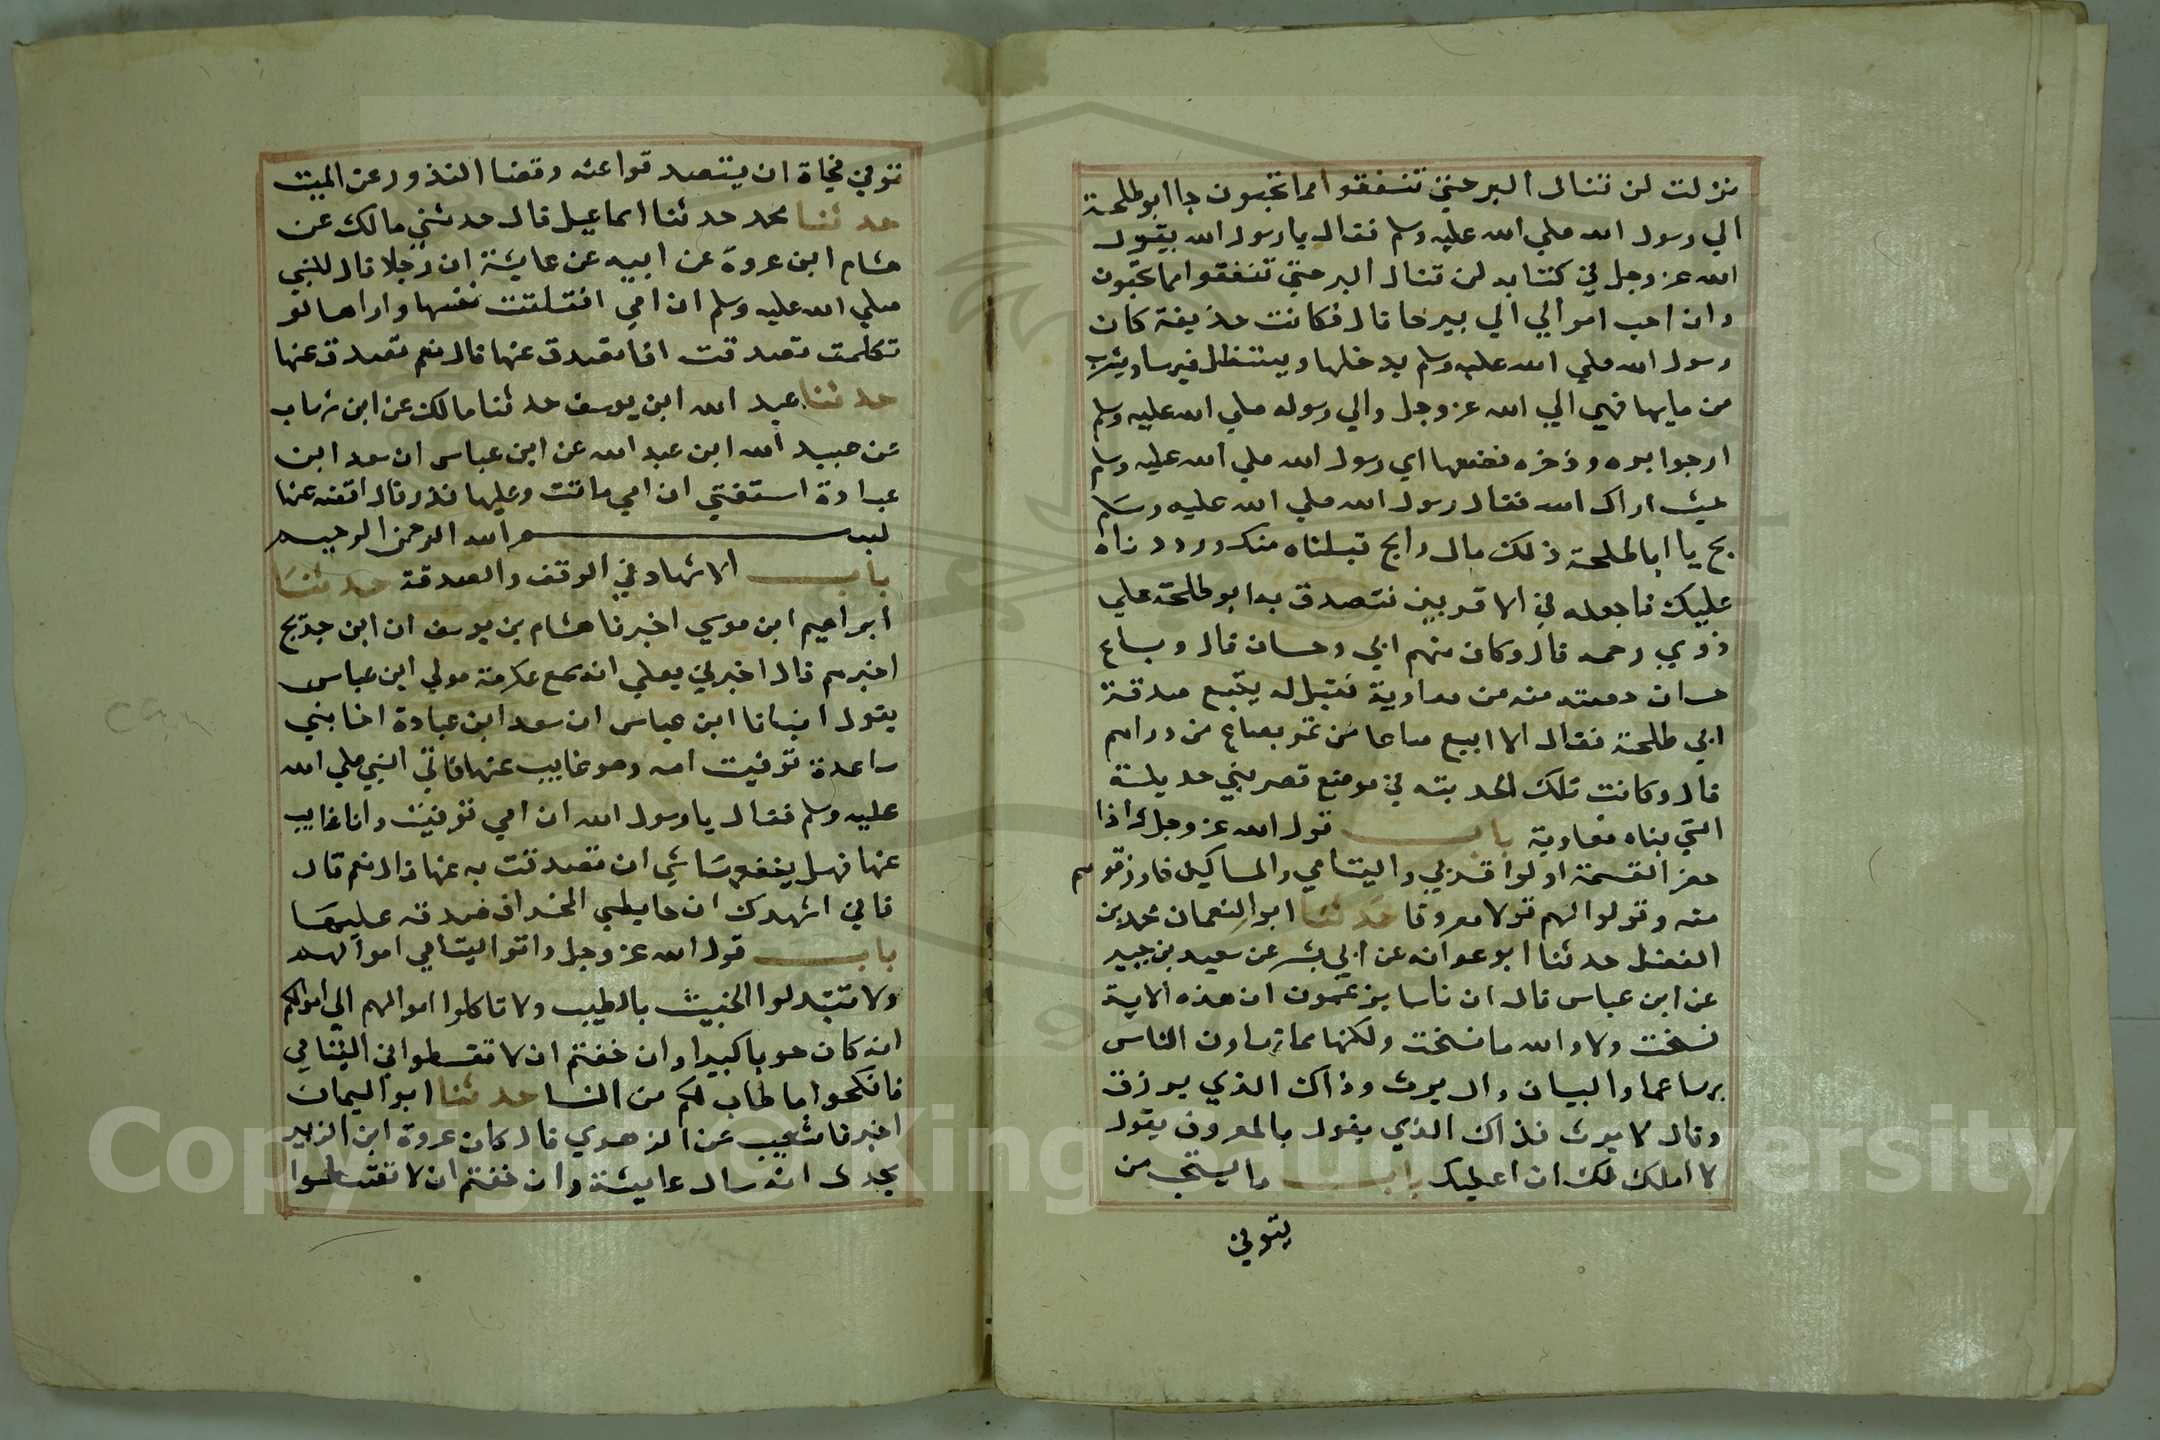 نزلت لن تنالو البر حتي تنفقوا مما تحبون جا ابو طلحة
الي رسول الله صلي الله عليه وسلم فقال يا رسول الله يقول
الله عز وجل في كتابه لن تنالو البر حتي تنفقوا مما تحبون
وان احب اموالي الي بيرحا قال فكانت حذيفة كان
رسول الله صلي الله عليه وسلم يدخلها ويستظل فيها ويشرب
من مايها فهي الي الله عز وجل والي رسوله صلي الله عليه وسلم
ارجوا بره وذخره فضعها اي رسول الله صلي الله عليه وسلم
حيث اراك الله فقال رسول الله صلي الله عليه وسلم
بخ يا ابا طلحة ذلك مال رابح قبلناه منك ورددناه
عليك فاجعله في الاقربين فتصدق به ابو طلحة علي
ذوي رحمه قال وكان منهم ابي وحسان قال وباع
حسان حصته منه من معاوية فقيل له يتبع صدقة
ابي طلحة فقال الا ابيع صاعا من تمر بصاع من دراهم
قال وكانت تلك الحديقه في موضع قصر بني حديلة
التي بناه معاوية باب قول الله عز وجل واذا
حضر القسمة اولوا قربي واليتامي والمساكين فارزقوهم
منه وقولوا لهم قولا معروفا حدثنا ابو النعمان محمد بن
الفضل حدثنا ابو عوانه عن ابي بشر عن سعيد بن جبير
عن ابن عباس قال ان ناسا يزعمون ان هذه الاية
نسخت ولا والله ما نسخت ولكنها مما تهاون الناس
والبيان وال يرث وذاك الذي يرزق
وقال لا يرث فذاك الذي يقول بالمعروف يقول
لا املك لك ان اعطيك باب ما يستحب من
يتوفي
توفي فجاة ان يتصدقوا عنه وقضا النذور عن الميت
حدثنا محمد حدثنا اسماعيل قال حدثني مالك عن
هشام ابن عروة عن ابيه عن عايشة ان رجلا قال للنبي
صلي الله عليه وسلم ان امي افتلتت نفسها واراها لو
تكلمت تصدقت افاتصدق عنها قال نعم تصدق عنها
حدثنا عبد الله ابن يوسف حدثنا مالك عن ابن شهاب
عن عبيد الله ابن عبد الله عن ابن عباس ان سعد ابن
عبادة استفتي ان امي ماتت وعليها نذر قال اقضه عنها
بسم الله الرحمن الرحيم
باب الاشهاد في الوقف والصدقة حدثنا
ابراهيم ابن موسي اخبرنا هشام بن يوسف ان ابن جريج
اخبرهم قال اخبرني يعلي انه سمع عكرمة مولي ابن عباس
يقول انبانا ابن عباس ان سعد ابن عبادة اخا بني
ساعدة توفيت امه وهو غايب عنها فاتي النبي صلي الله
عليه وسلم فقال يا رسول الله ان امي توفيت وانا غايب
عنها فهل ينفعها شي ان تصدقت به عنها قال نعم قال
فاني اشهدك ان حايطي المخراف صدقه عليها
باب قول الله عز وجل واتوا اليتامي اموالهم
ولا تتبدلوا الخبيث بالطيب ولا تاكلوا اموالهم الي اموالكم
انه كان حوبا كبيرا وان خفتم ان لا تقسطوا في اليتامي
فانكحوا ما طاب لكم من النسا حدثنا ابو اليمان
اخبرنا شعيب عن الزهري قال كان عروة ابن الزبير
يحدث انه سال عايشة وان خفتم ان لا تقسطوا
Copyright © King Saud University